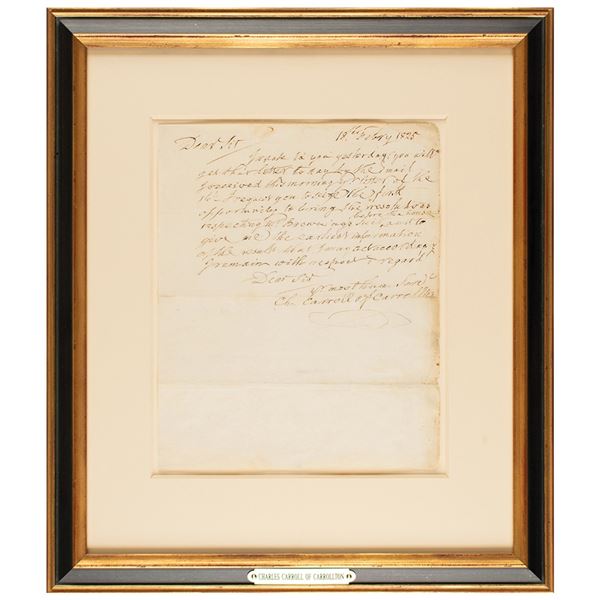 Dear Sir 18th Febry 1825
I wrote to you yesterday; you will
get this letter to day by the mail
I received this morning letter of the
16 I request you to seize the first
opportunity to bring the resolution
before the house
respecting Mr Browning and to
give me the earliest information
of the result that I may act accordingly
I remain with respect & regard
Dear Sir
yr most hum. Servt
Ch. Carroll of Carrollton
CHARLES CARROLL OF CARROLLTON